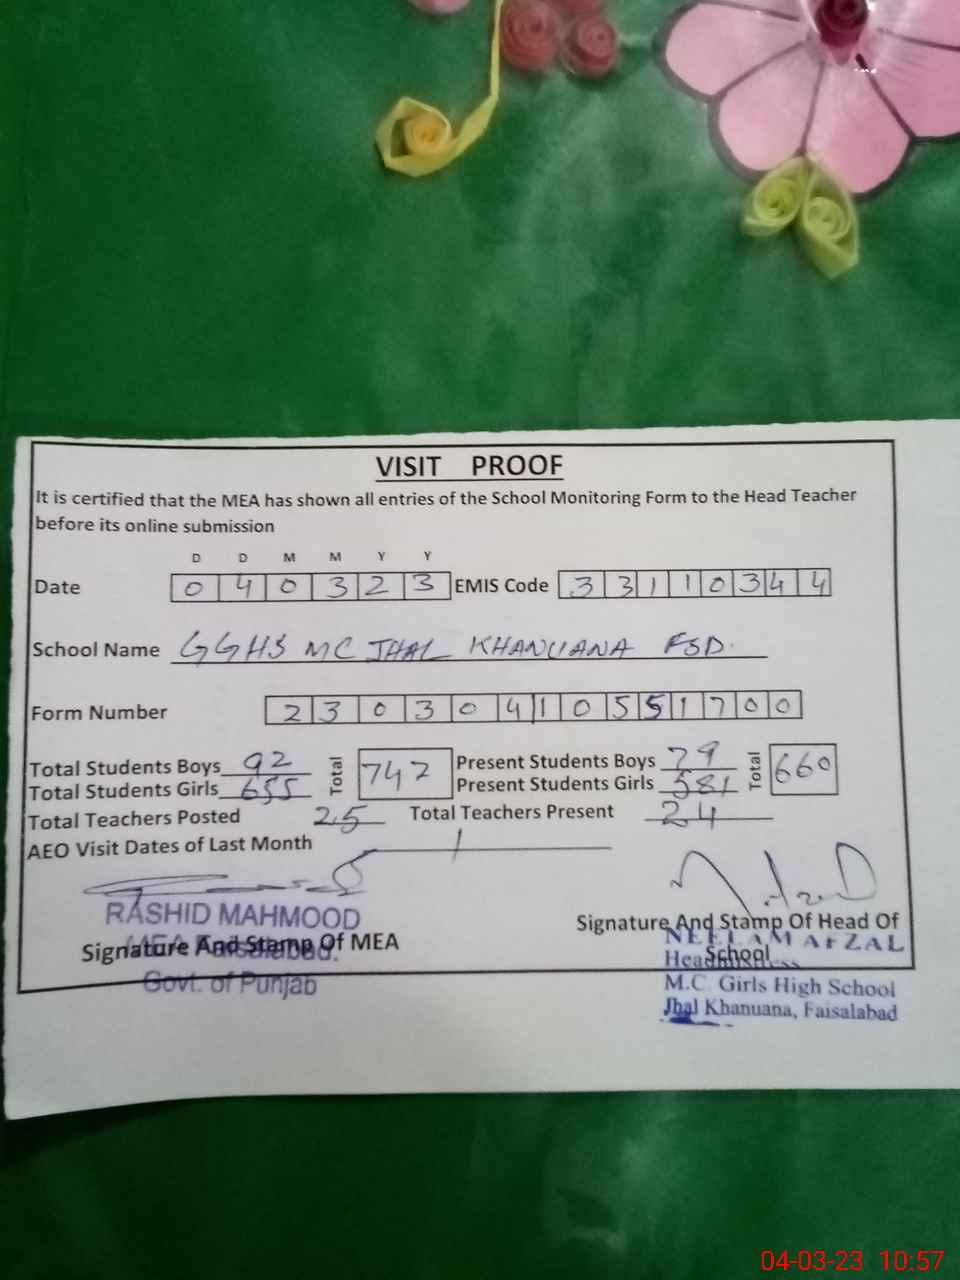 VISIT PROOF
It is certified that the MEA has shown all entries of the School Monitoring Form to the Head Teacher
before its online submission
D D M M Y Y
Date 0 4 0 3 2 3 EMIS Code 3 3 1 1 0 3 4 4
School Name GGHS MC JHAL KHANUANA FSD.
Form Number 2 3 0 3 0 4 1 0 5 5 1 7 0 0
Total Students Boys 92 Total 747 Present Students Boys 79 Total 660
Total Students Girls 655 Present Students Girls 581
Total Teachers Posted 25 Total Teachers Present 24
AEO Visit Dates of Last Month
RASHID MAHMOOD
Signature And Stamp Of MEA
MEA Faisalabad.
Govt. of Punjab
Signature And Stamp Of Head Of
School
NEELAM AFZAL
Headmistress
M.C. Girls High School
Jhal Khanuana, Faisalabad
04-03-23 10:57